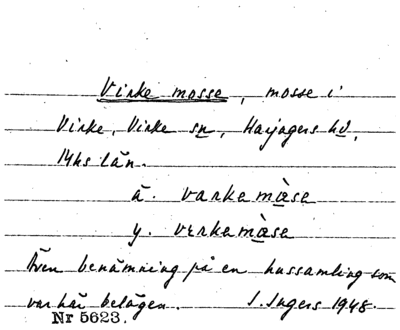 Virke mosse, mosse i
Virke, Virke sn, Harjagers hd,
M-hs län.
ä. varkemàse
y. verkemàse
Även benämning på en hussamling som
var här belägen. I. Ingers 1948.
Nr 5623.